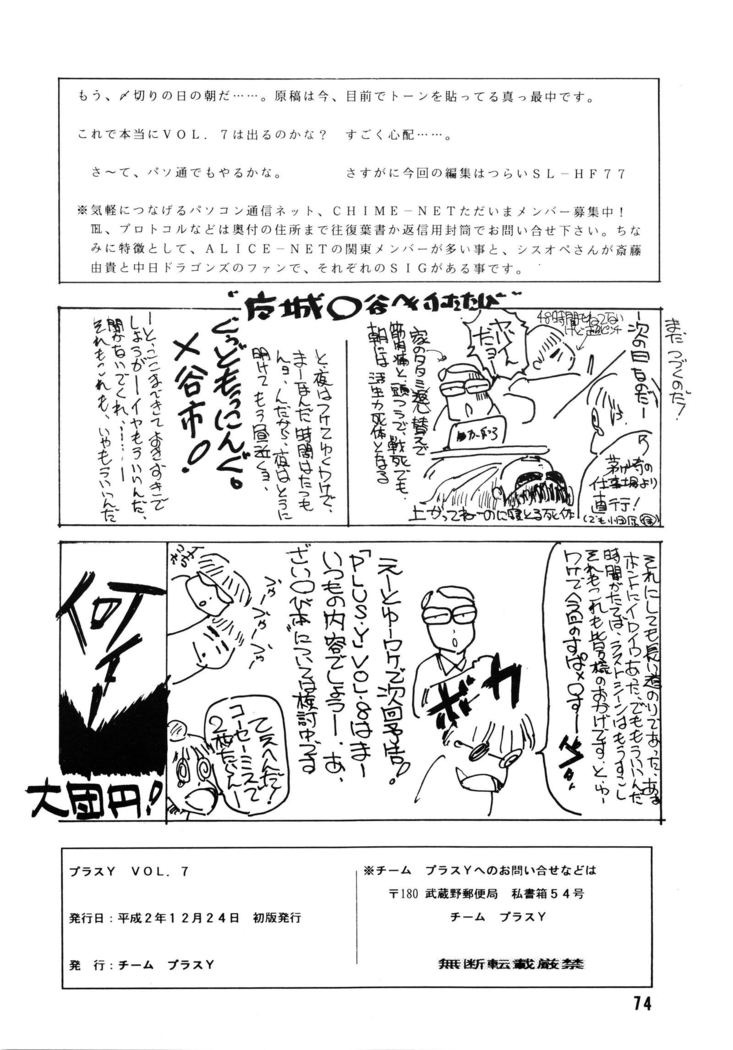 もう、〆切りの日の朝だ……。原稿は今、目前でトーンを貼ってる真っ最中です。
これで本当にＶＯＬ．７は出るのかな？　すごく心配……。
さ～て、パソ通でもやるかな。　さすがに今回の編集はつらいＳＬ－ＨＦ７７
※気軽につなげるパソコン通信ネット、ＣＨＩＭＥ－ＮＥＴただいまメンバー募集中！
℡、プロトコルなどは奥付の住所まで往復葉書か返信用封筒でお問い合せ下さい。ちな
みに特徴として、ＡＬＩＣＥ－ＮＥＴの関東メンバーが多い事と、シスオペさんが斎藤
由貴と中日ドラゴンズのファンで、それぞれのＳＩＧがある事です。
まだつづくのだ！
―次の日なのだ―
48時間でもねてない
茅ヶ崎の
仕事場より
直行！
家のタタミ返し替えで
筋肉痛と頭つうで戦死でも、
朝には活生力死体となる
上がってねーのに寝とる死体
ぐっどもぅにんぐ。
〆谷市！
と、夜はつけてゆくワケで、
まーなんだ、時間はたつも
んョ、んだから、夜はとうに
明けてもう昼近くョ、
―と、ここまできておきずきで
しょうが――イヤもういいんだ、
聞かないでくれ、……―
それもこれも、いやもういいんだ
それにしても長い道のりであった、ああ
ホントにイロイロあった、でももういいんだ
時間がたてば、ラストシーンはもうすこし
それもこれも皆様のおかげです、とゆー
ワケで今回のすぱ〆〇すー
ボカ
えーとゆーワケで次回予告！
「PLUS・Y」VOL.8はまー
いつもの内容でしょうー、あ、
ざい〇び本については検討中です
てえへんだ！
コーセーミスで
2枚たんねー
何ィー！
大団円！
プラスＹ　ＶＯＬ．７
発行日：平成２年１２月２４日　初版発行
発　行：チーム　プラスＹ
※チーム　プラスＹへのお問い合せなどは
〒180　武蔵野郵便局　私書箱５４号
チーム　プラスＹ
無断転載厳禁
74